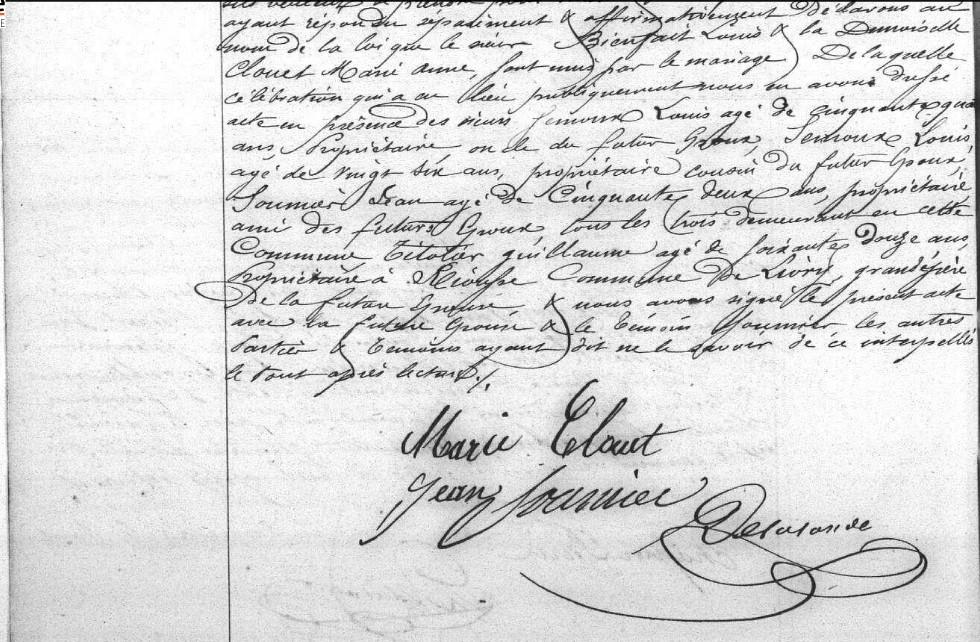 ayant répondu séparément & affirmativement Déclarons au
nom de la loi que le sieur Bienfait Louis & la Demoiselle
Clouet Marie Anne, sont unis par le mariage, De laquelle
célébration qui a eu lieu publiquement nous en avons dressé
acte en présence des sieurs Louis agé de cinquante
ans, Propriétaire oncle du futur Epoux, Louis
agé de vingt six ans, propriétaire cousin du futur Epoux,
Jean agé de Cinquante deux ans, propriétaire
ami des futurs Epoux tous les trois demeurant en cette
Commune guillaume agé de soixante douze ans
Propriétaire à Commune De Livry, grand père
De la future Epouse & nous avons signé le présent acte
avec la future Epouse & le témoin les autres
Parties & témoins ayant dit ne le savoir de ce interpellés
le tout après lecture ./.
Marie Clouet
Jean